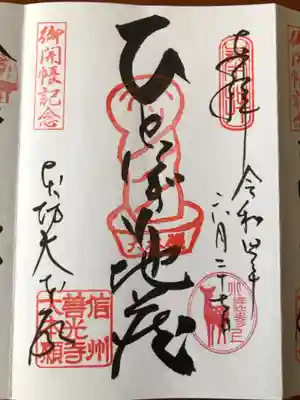 奉拝
令和四年
六月二十
ひとにぎり地蔵
御開帳記念
善光寺大本願
信州
善光寺
大本願